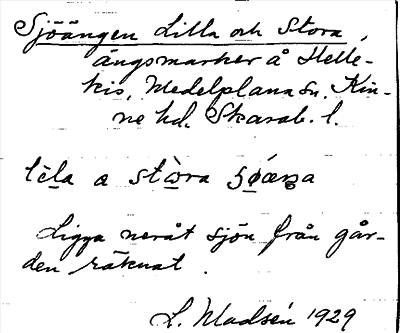 Sjöängen Lilla och Stora,
ängsmarker å Helle-
kis, Medelplana sn. Kin-
ne hd. Skarab. l.
lìla a stòra ʃøæŋa
Ligga neråt sjön från går-
den räknat.
L. Madsén 1929